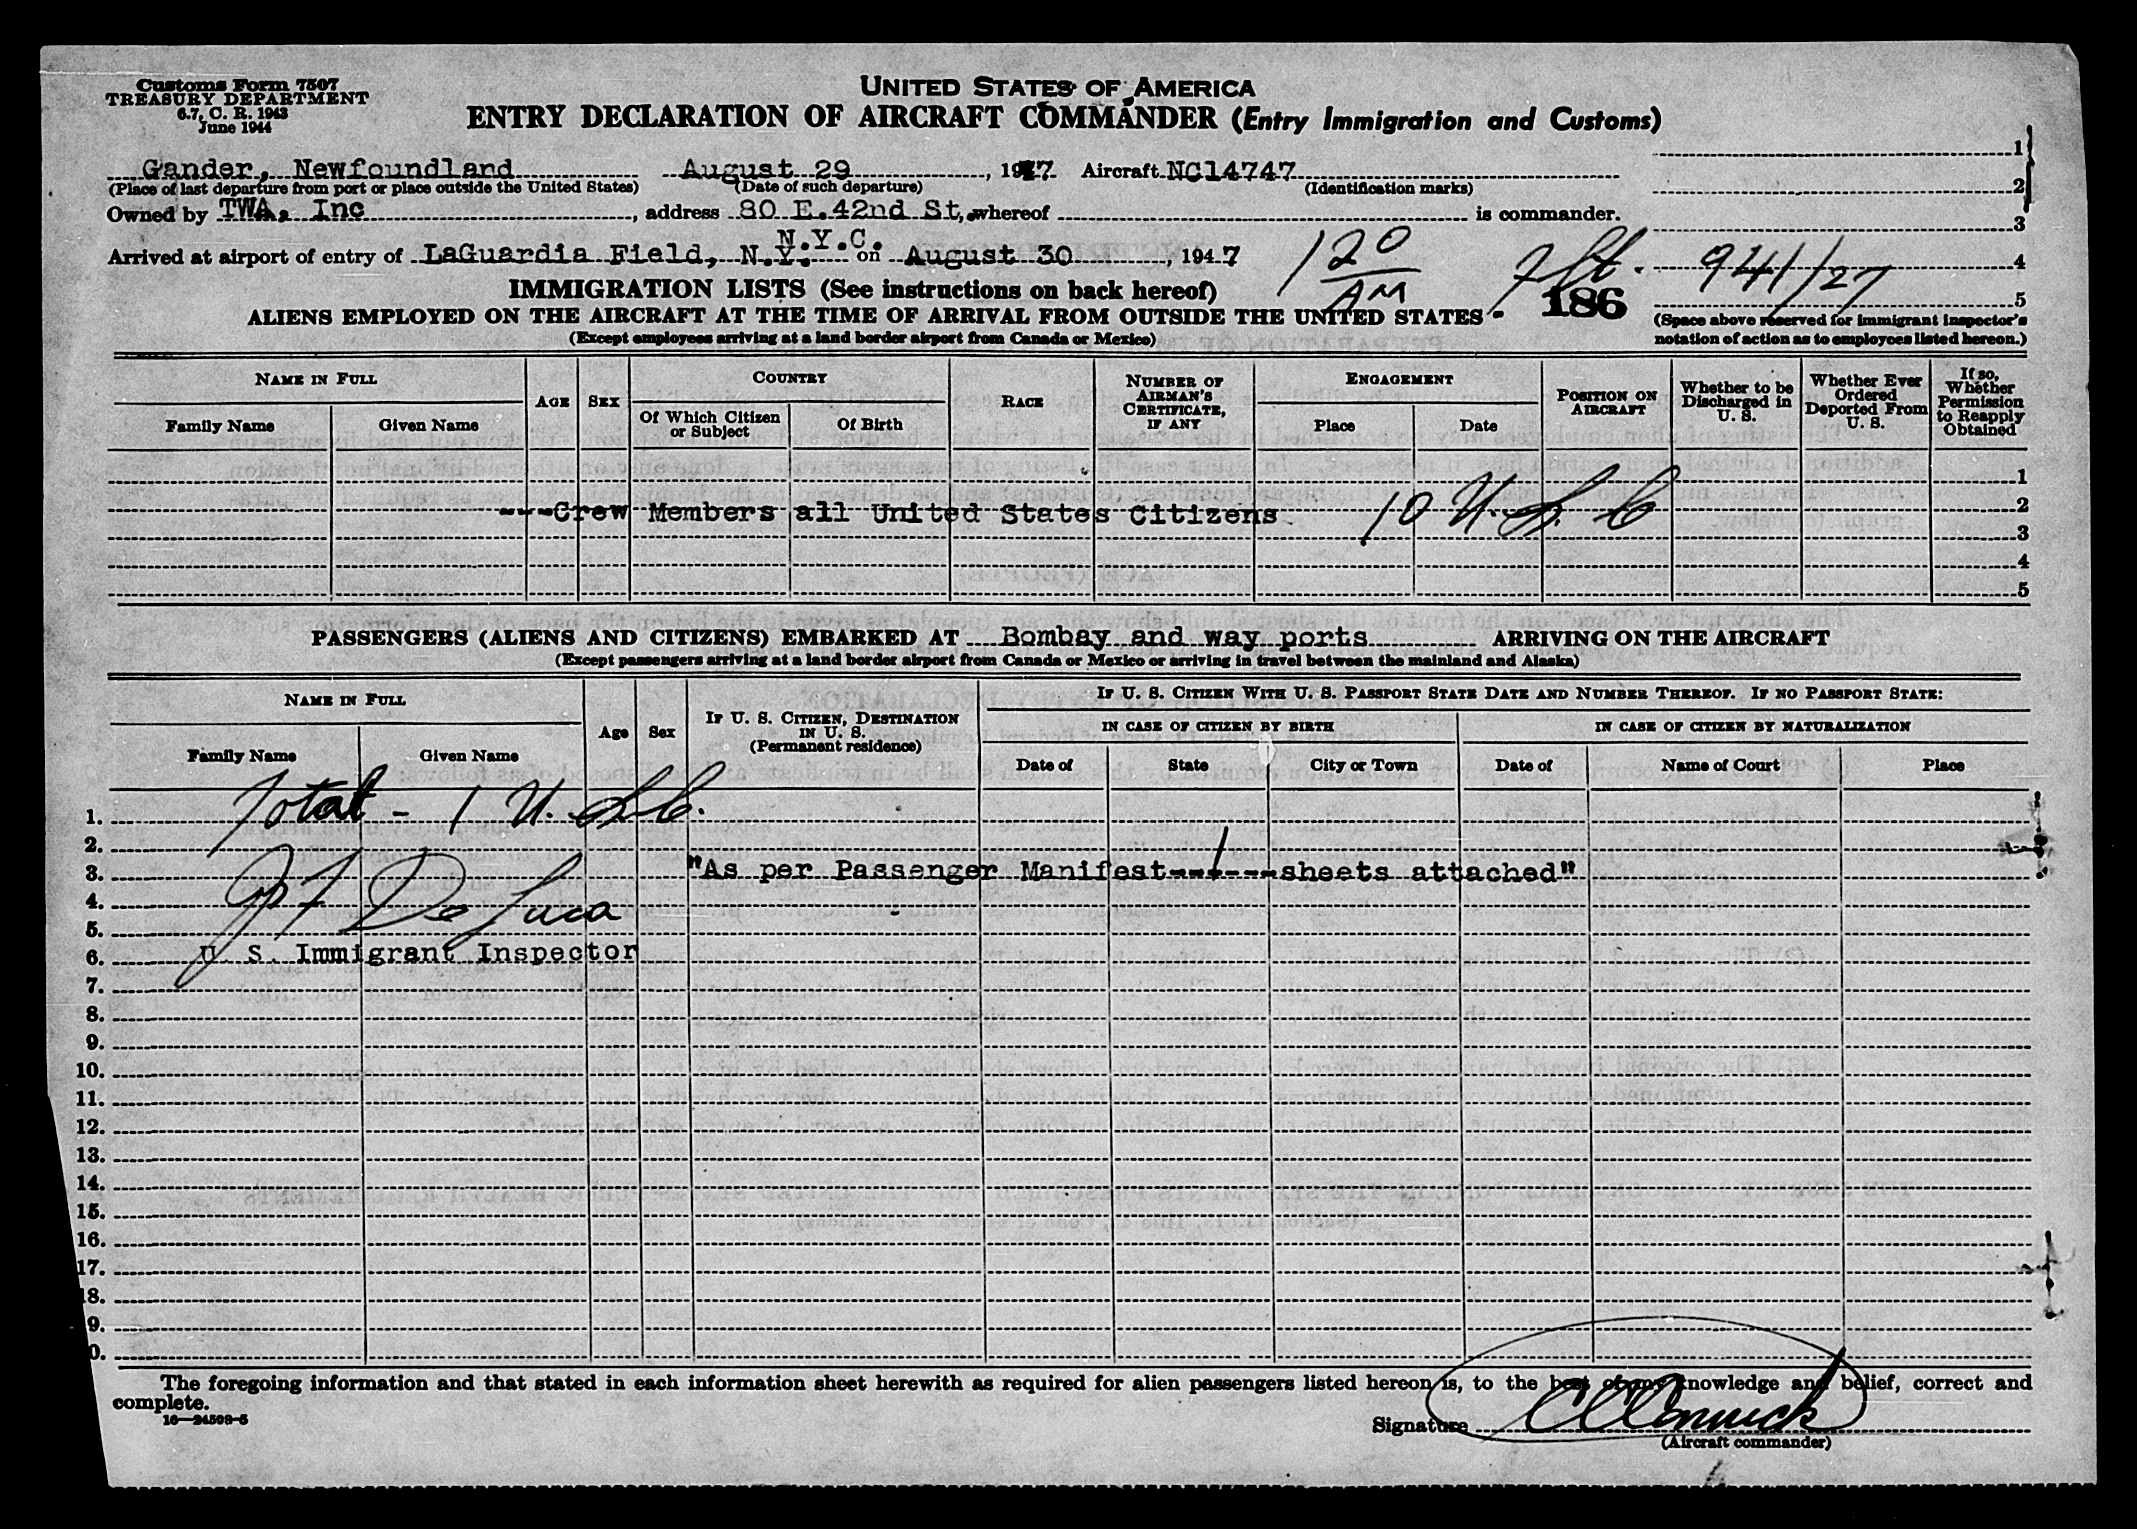 Customs Form 7507
TREASURY DEPARTMENT
6.7, C. R. 1943
June 1944
UNITED STATES OF AMERICA
ENTRY DECLARATION OF AIRCRAFT COMMANDER (Entry Immigration and Customs)
Gander, Newfoundland August 29, 1947 Aircraft NC14747
(Place of last departure from port or place outside the United States) (Date of such departure) (Identification marks)
Owned by TWA, Inc, address 80 E. 42nd St, whereof is commander.
N.Y.C.
Arrived at airport of entry of LaGuardia Field, N.Y. on August 30, 1947
120
AM
Flt. 186
941/27
1
2
3
4
5
(Space above reserved for immigrant inspector's
notation of action as to employees listed hereon.)
IMMIGRATION LISTS (See instructions on back hereof)
ALIENS EMPLOYED ON THE AIRCRAFT AT THE TIME OF ARRIVAL FROM OUTSIDE THE UNITED STATES -
(Except employees arriving at a land border airport from Canada or Mexico)
NAME IN FULL
Family Name Given Name
AGE SEX
COUNTRY
Of Which Citizen or Subject Of Birth
RACE
NUMBER OF AIRMAN'S CERTIFICATE, IF ANY
ENGAGEMENT
Place Date
POSITION ON AIRCRAFT
Whether to be Discharged in U. S.
Whether Ever Ordered Deported From U. S.
If so, Whether Permission to Reapply Obtained
1
2
---Crew Members all United States Citizens 10 U.S.C
3
4
5
PASSENGERS (ALIENS AND CITIZENS) EMBARKED AT Bombay and way ports ARRIVING ON THE AIRCRAFT
(Except passengers arriving at a land border airport from Canada or Mexico or arriving in travel between the mainland and Alaska)
NAME IN FULL
Family Name Given Name
Age Sex
IF U. S. CITIZEN, DESTINATION IN U. S.
(Permanent residence)
IF U. S. CITIZEN WITH U. S. PASSPORT STATE DATE AND NUMBER THEREOF. IF NO PASSPORT STATE:
IN CASE OF CITIZEN BY BIRTH IN CASE OF CITIZEN BY NATURALIZATION
Date of State City or Town Date of Name of Court Place
1. Total - 1 U.S.C.
2.
3. "As per Passenger Manifest---1---sheets attached"
4. De Luca
5.
6. U. S. Immigrant Inspector
7.
8.
9.
10.
11.
12.
13.
14.
15.
16.
17.
8.
9.
0.
The foregoing information and that stated in each information sheet herewith as required for alien passengers listed hereon is, to the best of my knowledge and belief, correct and
complete.
16—24598-5
Signature
(Aircraft commander)